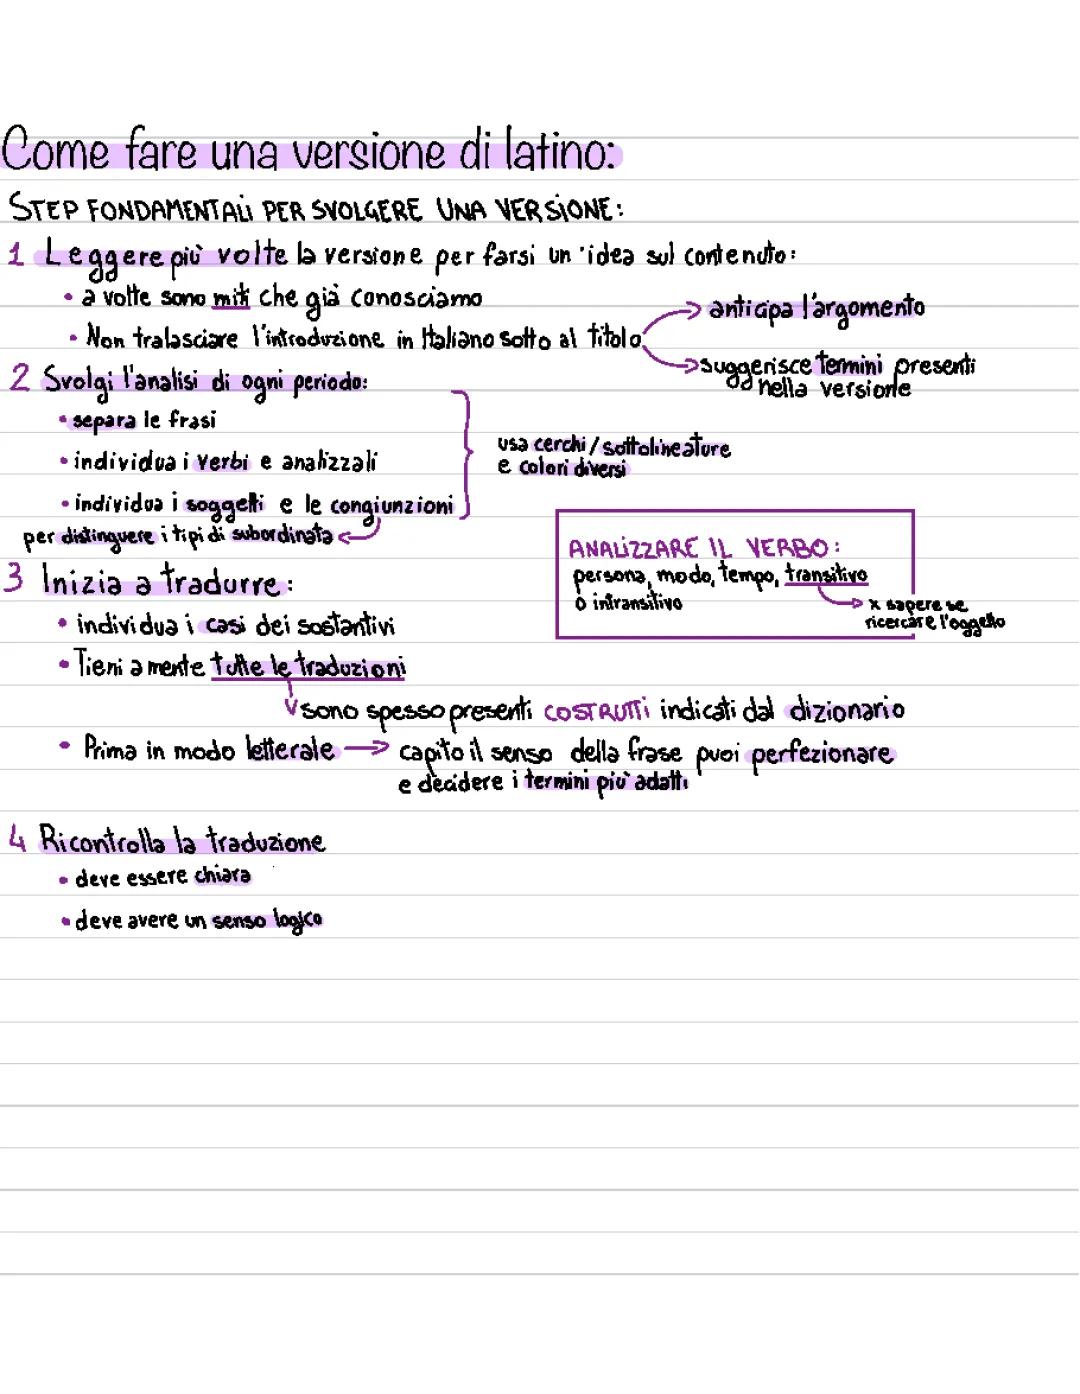 Come fare una versione di latino:
STEP FONDAMENTALi PER SVOLGERE UNA VERSiONE:
1 Leggere più volte la versione per farsi un'idea sul contenuto:
• a volte sono miti che già conosciamo
• Non tralasciare l'introduzione in Italiano sotto al titolo
anticipa l'argomento
suggerisce termini presenti
nella versione
2 Svolgi l'analisi di ogni periodo:
• separa le frasi
• individua i verbi e analizzali
• individua i soggetti e le congiunzioni
per distinguere i tipi di subordinata
usa cerchi/sottolineature
e colori diversi
ANALiZZARE IL VERBO:
persona, modo, tempo, transitivo
o intransitivo
x sapere se
ricercare l'oggetto
3 Inizia a tradurre:
• individua i casi dei sostantivi
• Tieni a mente tutte le traduzioni
sono spesso presenti COSTRUTTi indicati dal dizionario
• Prima in modo letterale → capito il senso della frase puoi perfezionare
e decidere i termini più adatti
4 Ricontrolla la traduzione
• deve essere chiara
• deve avere un senso logico